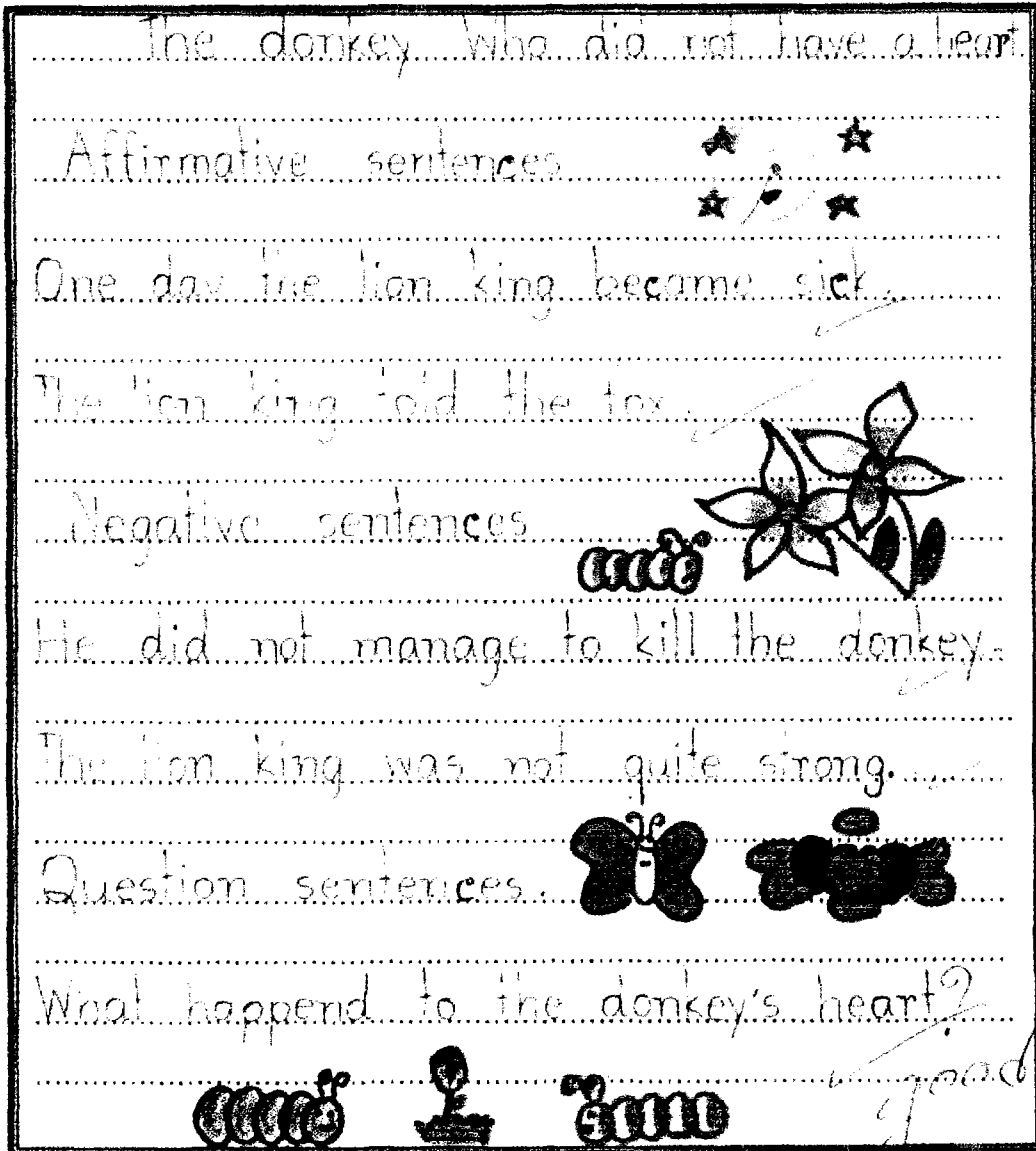 The donkey who did not have a heart
Affirmative sentences
One day the lion king became sick.
The lion king told the fox.
Negative sentences
He did not manage to kill the donkey.
The lion king was not quite strong.
Question sentences.
What happend to the donkey's heart?
good